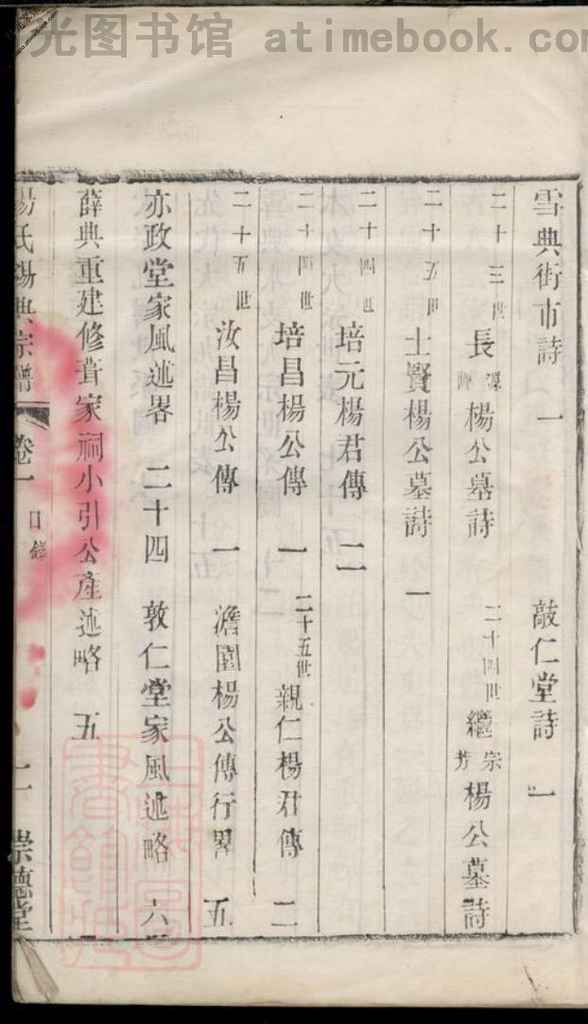 光图书馆 atimebook.com
雪典街市詩 一 敲仁堂詩 一
二十三世 長 楊公墓詩 二十四世 繼 宗 芳 楊公墓詩
二十五世 士賢楊公墓詩 一
二十四世 培元楊君傳 二
二十四世 培昌楊公傳 一 二十五世 親仁楊君傳 二
二十五世 汝昌楊公傳 一 澹園楊公傳行畧 五
亦政堂家風述畧 二十四 敦仁堂家風述略 六
薛典重建修葺家祠小引公產述略 五
楊氏 典宗譜 卷一 目錄 二 崇德堂